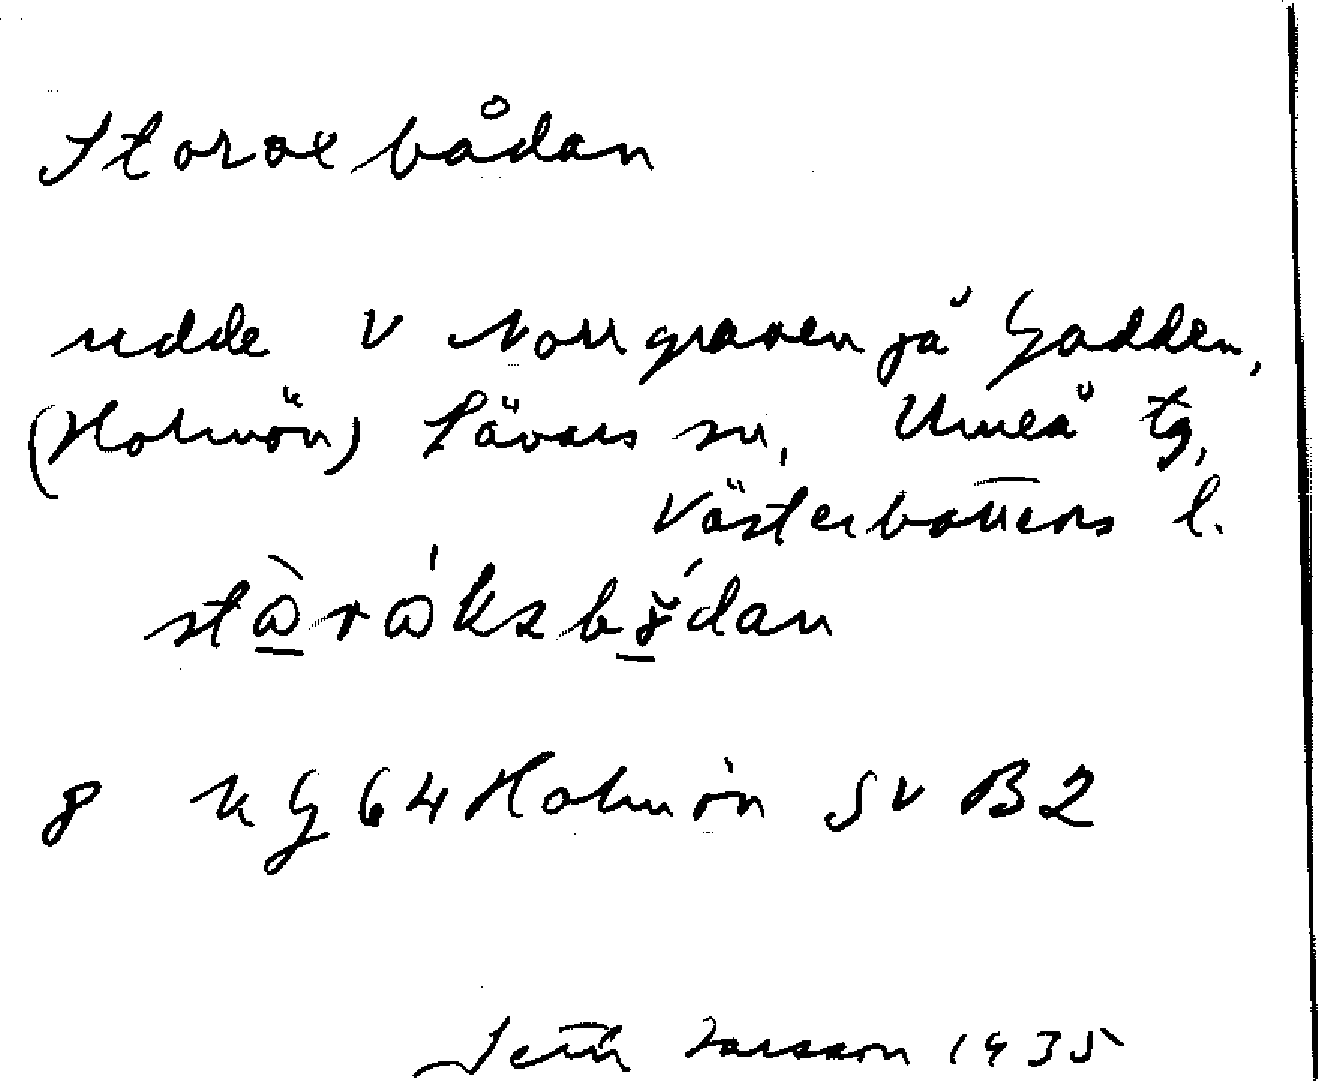 Storoxbådan
udde V Norrgraven på Gadden,
(Holmön) Sävars sn, Umeå tg,
Västerbottens l.
8 KG 64 Holmön SV B2
Seth Larsson 1935